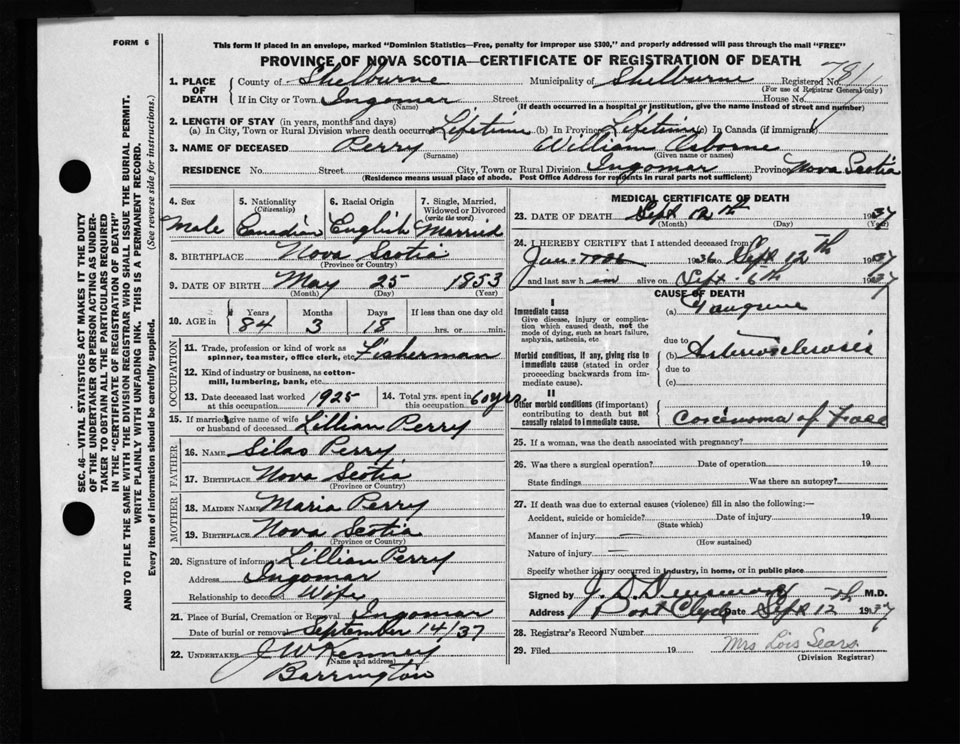 FORM 6
This form if placed in an envelope, marked "Dominion Statistics—Free, penalty for improper use $300," and properly addressed will pass through the mail "FREE"
PROVINCE OF NOVA SCOTIA—CERTIFICATE OF REGISTRATION OF DEATH
SEC. 46—VITAL STATISTICS ACT MAKES IT THE DUTY
OF THE UNDERTAKER OR PERSON ACTING AS UNDER-
TAKER TO OBTAIN ALL THE PARTICULARS REQUIRED
IN THE "CERTIFICATE OF REGISTRATION OF DEATH"
AND TO FILE THE SAME WITH THE DIVISION REGISTRAR WHO SHALL ISSUE THE BURIAL PERMIT.
WRITE PLAINLY WITH UNFADING INK. THIS IS A PERMANENT RECORD.
Every item of information should be carefully supplied. (See reverse side for instructions.)
1. PLACE OF DEATH County of Shelburne Municipality of Shelburne Registered No.
(For use of Registrar General only)
If in City or Town Ingomar Street House No.
(Name) (If death occurred in a hospital or institution, give the name instead of street and number)
2. LENGTH OF STAY (in years, months and days)
(a) In City, Town or Rural Division where death occurred Lifetime (b) In Province Lifetime (c) In Canada (if immigrant)
3. NAME OF DECEASED Perry William Osborne
(Surname) (Given name or names)
RESIDENCE No. Street City, Town or Rural Division Ingomar Province Nova Scotia
(Residence means usual place of abode. Post Office Address for residents in rural parts not sufficient)
4. Sex Male
5. Nationality (Citizenship) Canadian
6. Racial Origin English
7. Single, Married, Widowed or Divorced (write the word) Married
8. BIRTHPLACE Nova Scotia
(Province or Country)
9. DATE OF BIRTH May 25 1853
(Month) (Day) (Year)
10. AGE in Years Months Days If less than one day
84 3 18 hrs. or min.
OCCUPATION
11. Trade, profession or kind of work as spinner, teamster, office clerk, etc. Fisherman
12. Kind of industry or business, as cotton-mill, lumbering, bank, etc.
13. Date deceased last worked at this occupation 1925
14. Total yrs. spent in this occupation 60 yrs.
15. If married give name of wife or husband of deceased Lillian Perry
FATHER
16. NAME Silas Perry
17. BIRTHPLACE Nova Scotia
(Province or Country)
MOTHER
18. MAIDEN NAME Maria Perry
19. BIRTHPLACE Nova Scotia
(Province or Country)
20. Signature of informant Lillian Perry
Address Ingomar
Relationship to deceased Wife
21. Place of Burial, Cremation or Removal Ingomar
Date of burial or removal September 14/37
22. UNDERTAKER J W Kenney
(Name and address)
Barrington
MEDICAL CERTIFICATE OF DEATH
23. DATE OF DEATH Sept 12th 1937
(Month) (Day) (Year)
24. I HEREBY CERTIFY that I attended deceased from
Jan. 1936 to Sept 12th 1937
and last saw h im alive on Sept. 6th 1937
CAUSE OF DEATH
I
Immediate cause (a) Gangrene
Give disease, injury or complication which caused death, not the mode of dying, such as heart failure, asphyxia, asthenia, etc
due to
Morbid conditions, if any, giving rise to immediate cause (stated in order proceeding backwards from immediate cause). (b) Arteriosclerosis
due to
(c)
II
Other morbid conditions (if important) contributing to death but not causally related to immediate cause. Carcinoma of Face
25. If a woman, was the death associated with pregnancy?
26. Was there a surgical operation? Date of operation 19
State findings Was there an autopsy?
27. If death was due to external causes (violence) fill in also the following:
Accident, suicide or homicide? Date of injury 19
(State which)
Manner of injury —
(How sustained)
Nature of injury —
Specify whether injury occurred in industry, in home, or in public place
Signed by M.D.
Address Port Clyde Date Sept 12 1937
28. Registrar's Record Number
29. Filed 19 Mrs Lois Sears
(Division Registrar)